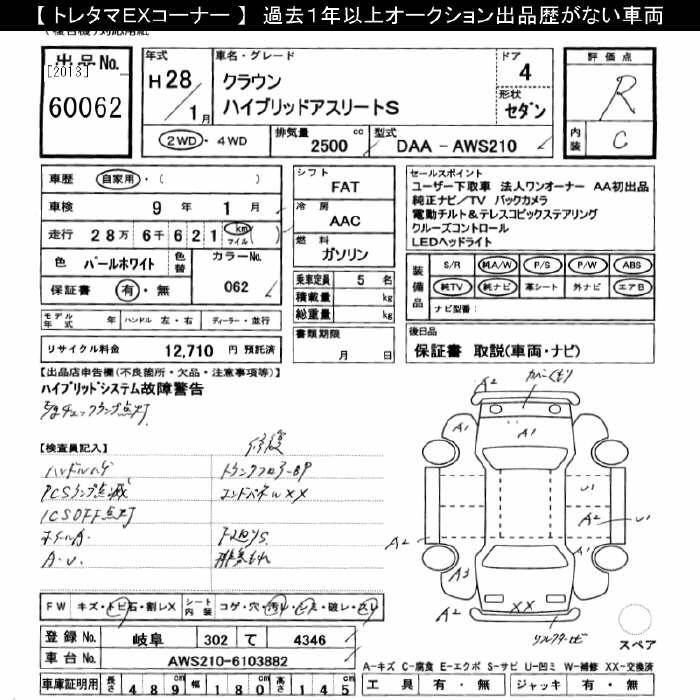 【 トレタマEXコーナー 】 過去1年以上オークション出品歴がない車両
出品 No.
[2013]
60062
年式
H28/1月
車名・グレード
クラウン
ハイブリッドアスリートS
ドア
4
形状
セダン
評価点
R
内装
C
2WD・4WD
排気量
2500 cc
型式
DAA - AWS210
車歴 自家用・( )
車検 9 年 1 月
走行 28万 6千 621 km マイル ( )
色 パールホワイト
色替
カラーNo.
062
保証書 有・無
モデル年式 年 ハンドル 左・右 ディーラー・並行
リサイクル料金 12,710 円 預託済
シフト
FAT
冷房
AAC
燃料
ガソリン
乗車定員 5 名
積載量 kg
総重量 kg
書類期限
月 日
セールスポイント
ユーザー下取車 法人ワンオーナー AA初出品
純正ナビ/TV バックカメラ
電動チルト&テレスコピックステアリング
クルーズコントロール
LEDヘッドライト
装備品
S/R 純A/W P/S P/W ABS
純TV 純ナビ 革シート 外ナビ エアB
ナビ型番:
後日品
保証書 取説(車両・ナビ)
【出品店申告欄(不良箇所・欠品・注意事項等)】
ハイブリッドシステム故障警告
【検査員記入】
修復
ハンドルハゲ
トランクフロアーBP
PCSランプ点滅
エンドパネルXX
ICSOFF点灯
A.U.
下廻りS
FW キズ・トビ石・割レX
シート内装 コゲ・穴・汚レ・シミ・破レ・スレ
登録 No. 岐阜 302 て 4346
車台 No. AWS210-6103882
車庫証明用 長さ 489cm 幅 180cm 高さ 145cm
A2
カバーくもり
A1
A1
A1
U1
A2
U1
A2
A3
A1
XX
A2
リフレクターヒビ
スペア
A-キズ C-腐食 E-エクボ S-サビ U-凹ミ W-補修 XX-交換済
工具 有・無 ジャッキ 有・無